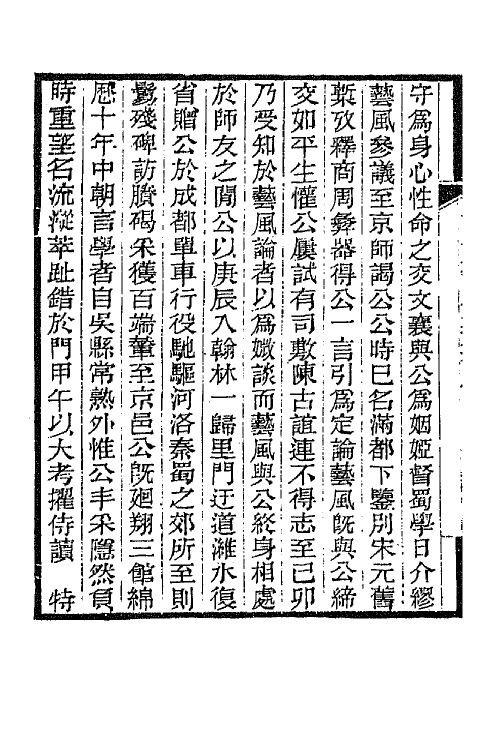 守爲身心性命之交文襄與公爲姻婭督蜀學日介繆
藝風參議至京師謁公公時已名滿都下鑒別宋元舊
槧攷釋商周彝器得公一言引爲定論藝風旣與公締
交如平生懽公屢試有司敷陳古誼連不得志至己卯
乃受知於藝風論者以爲媺談而藝風與公終身相處
於師友之閒公以庚辰入翰林一歸里門迂道濰水復
省贈公於成都單車行役馳驅河洛秦蜀之郊所至則
鬄殘碑訪賸碣采獲百端輦至京邑公旣廻翔三館綿
歷十年中朝言學者自吳縣常熟外惟公丰采隱然負
時重望名流漎萃趾錯於門甲午以大考擢侍讀　特